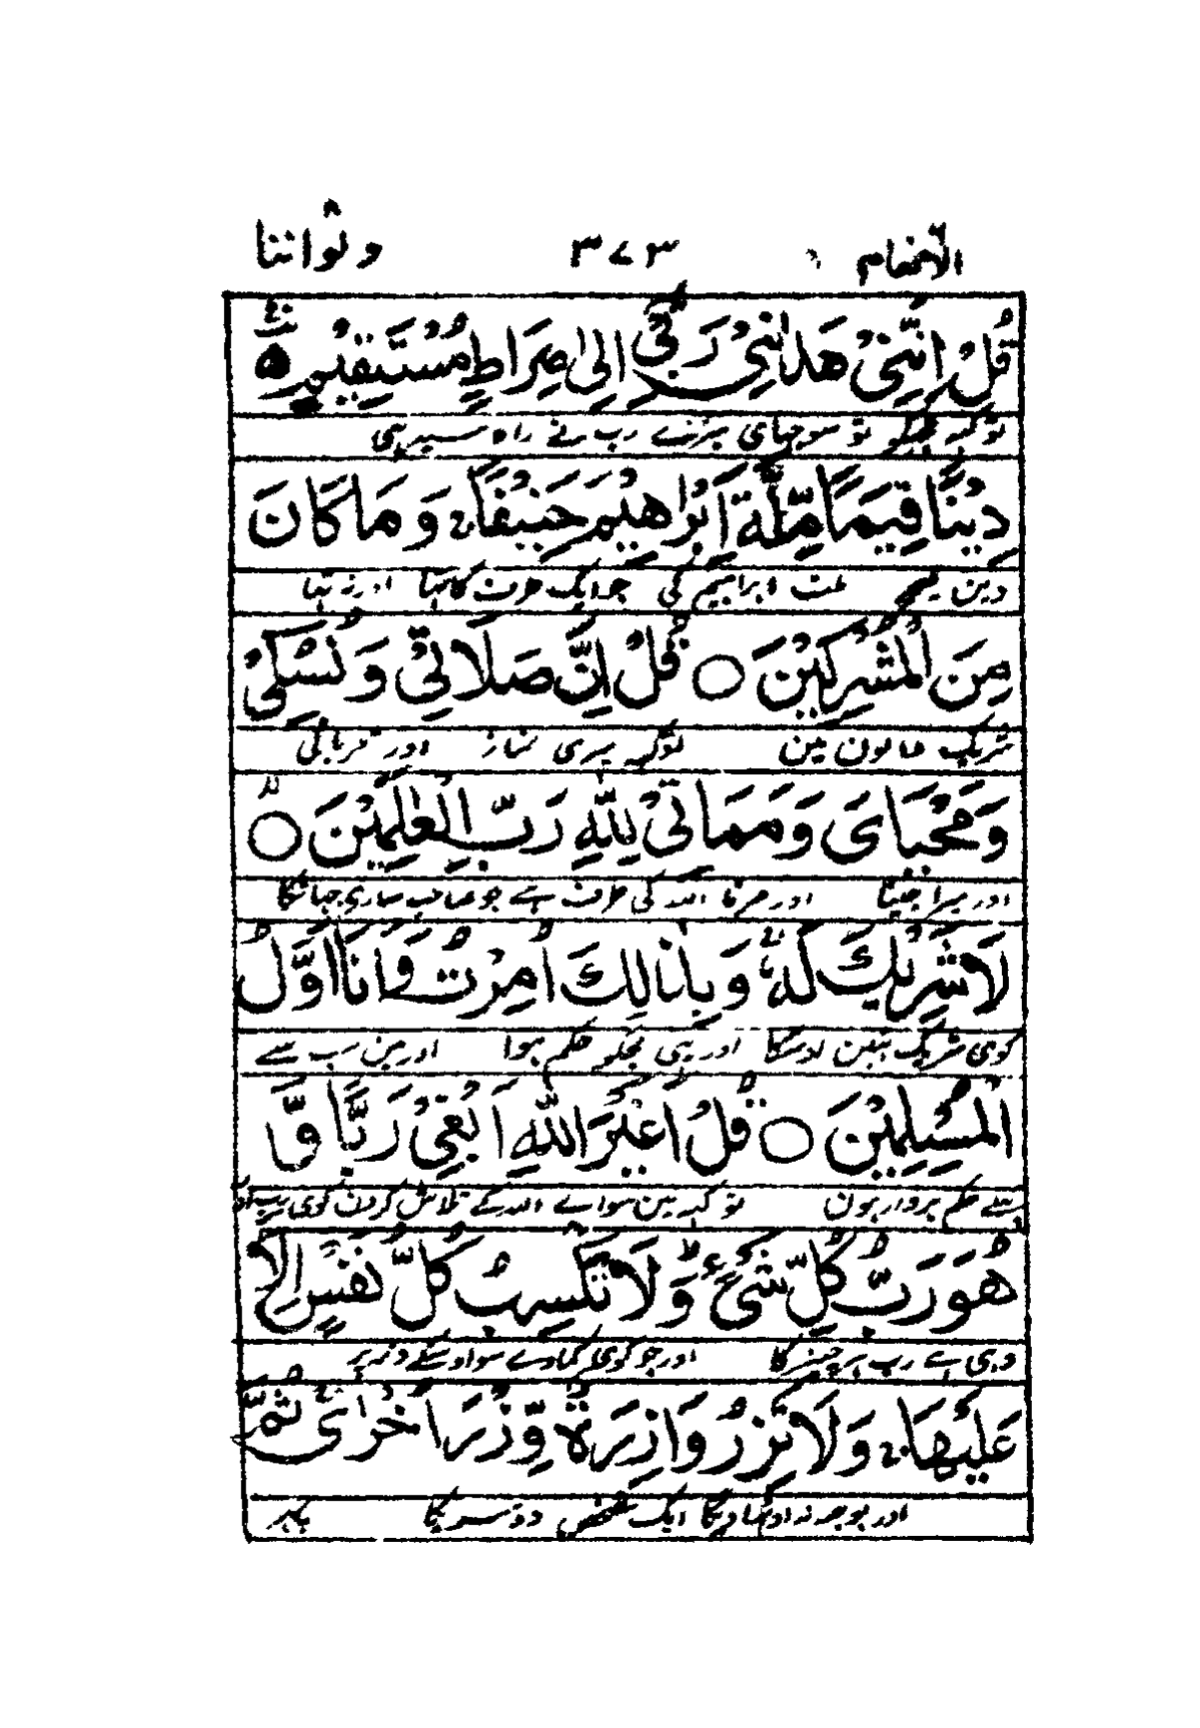 الانعام ٦ ٣٧٣ ولواننا ٨
قُلْ اِنَّنِیْ هَدٰىنِیْ رَبِّیْۤ اِلٰی صِرَاطٍ مُّسْتَقِیْمٍ ۵
تو کہہ مجکو تو سوجہای میرے رب نے راہ سیدہی
دِیْنًا قِیَمًا مِّلَّةَ اِبْرَاهِیْمَ حَنِیْفًا ۚ وَ مَا كَانَ
دین صحیح ملت ابراہیم کی جو ایک طرف کا تہا اور نہ تہا
مِنَ الْمُشْرِكِیْنَ ○ قُلْ اِنَّ صَلَاتِیْ وَ نُسُكِیْ
شریک والون مین تو کہہ میری نماز اور قربانی
وَ مَحْیَایَ وَ مَمَاتِیْ لِلّٰهِ رَبِّ الْعٰلَمِیْنَ ○ لا
اور میرا جینا اور مرنا اللہ کی طرف ہے جو صاحب ساری جہانکا
لَا شَرِیْكَ لَهٗ ۚ وَ بِذٰلِكَ اُمِرْتُ وَ اَنَا اَوَّلُ
کوی شریک نہین اوسکا اور یہی مجکو حکم ہوا اور مین سب سے
الْمُسْلِمِیْنَ ○ قُلْ اَغَیْرَ اللّٰهِ اَبْغِیْ رَبًّا وَّ
پہلے حکم بردار ہون تو کہہ مین سواے اللہ کے تلاش کرون کوی رب اور
هُوَ رَبُّ كُلِّ شَیْءٍ ؕ وَ لَا تَكْسِبُ كُلُّ نَفْسٍ اِلَّا
وہی ہے رب ہر چیز کا اور جو کوی کماوے سو اوسکے ذمہ پر
عَلَیْهَا ۚ وَ لَا تَزِرُ وَازِرَةٌ وِّزْرَ اُخْرٰی ۚ ثُمَّ
اور بوجہ نہ اوٹہاویگا ایک شخص دوسریکا پہر